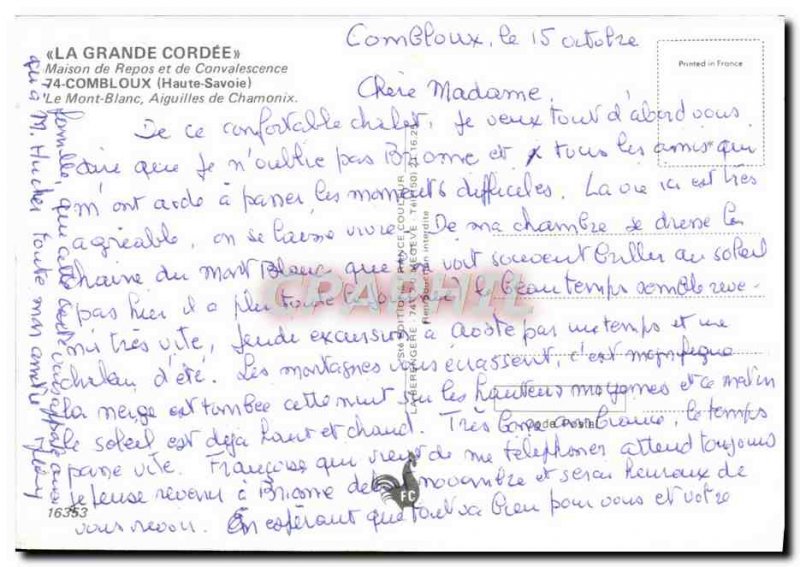 «LA GRANDE CORDÉE»
Maison de Repos et de Convalescence
74-COMBLOUX (Haute-Savoie)
Le Mont-Blanc, Aiguilles de Chamonix.
Printed in France
Combloux, le 15 octobre
Chère Madame,
De ce confortable chalet, je veux tout d'abord vous
dire que je n'oublie pas Briome et tous les amis qui
m'ont aidé à passer les moments difficiles. La vie ici est très
agréable, on se laisse vivre. De ma chambre se dresse la
chaine du Mont Blanc que on voit souvent briller au soleil
pas hier il a plu toute la le beau temps semble reve-
nir très vite, jeudi excursion à Aoste par un temps et une
chaleur d'été. Les montagnes vous écrasent, c'est magnifique
la neige est tombée cette nuit sur les hauteurs moyennes et ce matin
le soleil est déjà haut et chaud. Très bonne ambiance, le temps
passe vite. Françoise qui vient de me téléphoner attend toujours
je pense revenir à Briome début novembre et serai heureux de
vous revoir. En espérant que tout va bien pour vous et votre
famille,
qu'à M. toute mon amitié
Sté EDITIONS FRANCE COULEUR
MEGEVE
Reproduction interdite
Code Postal
FC
16353
CPARHIL